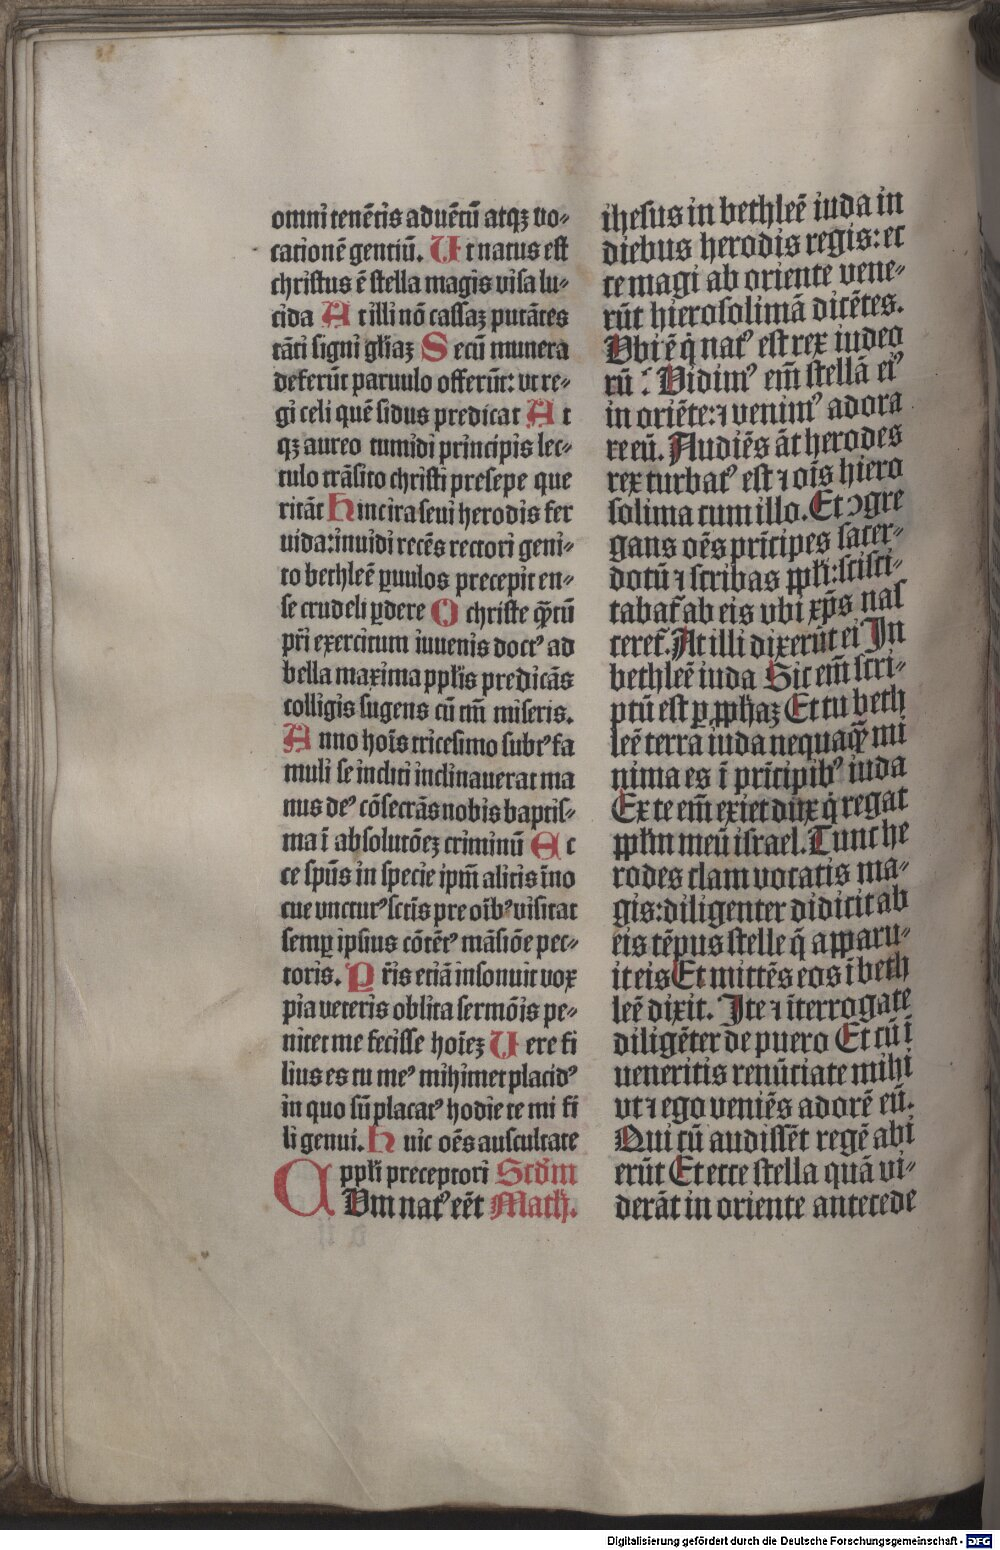 omni tenẽtis aduẽtũ atqꝫ vo⸗
cationẽ gentiũ. Ut natus est
christus ẽ stella magis visa lu⸗
cida At illi nõ cassaꝫ putãtes
tãti signi gl̃iaꝫ Secũ munera
deferũt paruulo offerũt: vt re⸗
gi celi quẽ sidus predicat At
qꝫ aureo tumidi principis lec⸗
tulo trãsito christi presepe que
ritãt Hinc ira seui herodis fer
uida: inuidi recẽs rectori geni⸗
to bethleẽ ꝑuulos precepit en⸗
se crudeli ꝑdere O christe q̃tũ
pr̃i exercitum iuuenis docꝰ ad
bella maxima ppl̃is predicãs
colligis sugens cũ tm̃ miseris.
Anno hoĩs tricesimo subtꝰ fa
muli se incliti inclinauerat ma
nus deꝰ cõsecrãs nobis baptis⸗
ma ĩ absolutõeꝫ criminũ Ec
ce spũs in specie ipm̃ alitis ĩno
cue vncturꝰ sctĩs pre oĩbꝰ visitat
semꝑ ipsius cõtẽtꝰ mãsiõe pec⸗
toris. Pr̃is etiã insonuit vox
pia veteris oblita sermõis pe⸗
nitet me fecisse hoĩeꝫ Uere fi
lius es tu meꝰ mihimet placidꝰ
in quo sũ placatꝰ hodie te mi fi
li genui. Huic oẽs auscultate
ppl̃i preceptori Scd̃m
CUm natꝰ eẽt Math̃.
ihesus in bethleẽ iuda in
diebus herodis regis: ec
ce magi ab oriente vene⸗
rũt hierosolimã dicẽtes.
Vbi ẽ q̇ natꝰ est rex iudeo
rũ? Vidimꝰ em̃ stellã eiꝰ
in oriẽte: ⁊ venimꝰ adora
re eũ. Audiẽs ãt herodes
rex turbatꝰ est ⁊ oĩs hiero
solima cum illo. Et ↄgre
gans oẽs prĩcipes sacer⸗
dotũ ⁊ scribas ppl̃i: scisci⸗
tabat᷑ ab eis vbi xp̃s nas
ceret᷑. At illi dixerũt ei In
bethleẽ iuda Sic em̃ scri⸗
ptũ est ꝑ ꝓph̃aꝫ Et tu beth
leẽ terra iuda nequaq̃ mi
nima es ĩ prĩcipibꝰ iuda
Ex te em̃ exiet dux q̇ regat
ppl̃m meũ israel. Tunc he
rodes clam vocatis ma⸗
gis: diligenter didicit ab
eis tẽpus stelle q̃ apparu⸗
it eis Et mittẽs eos ĩ beth
leẽ dixit. Ite ⁊ ĩterrogate
diligẽter de puero Et cũ ĩ
veneritis renũciate mihi
vt ⁊ ego veniẽs adorẽ eũ.
Qui cũ audissẽt regẽ abi
erũt Et ecce stella quã vi⸗
derãt in oriente antecede
Digitalisierung gefördert durch die Deutsche Forschungsgemeinschaft - DFG